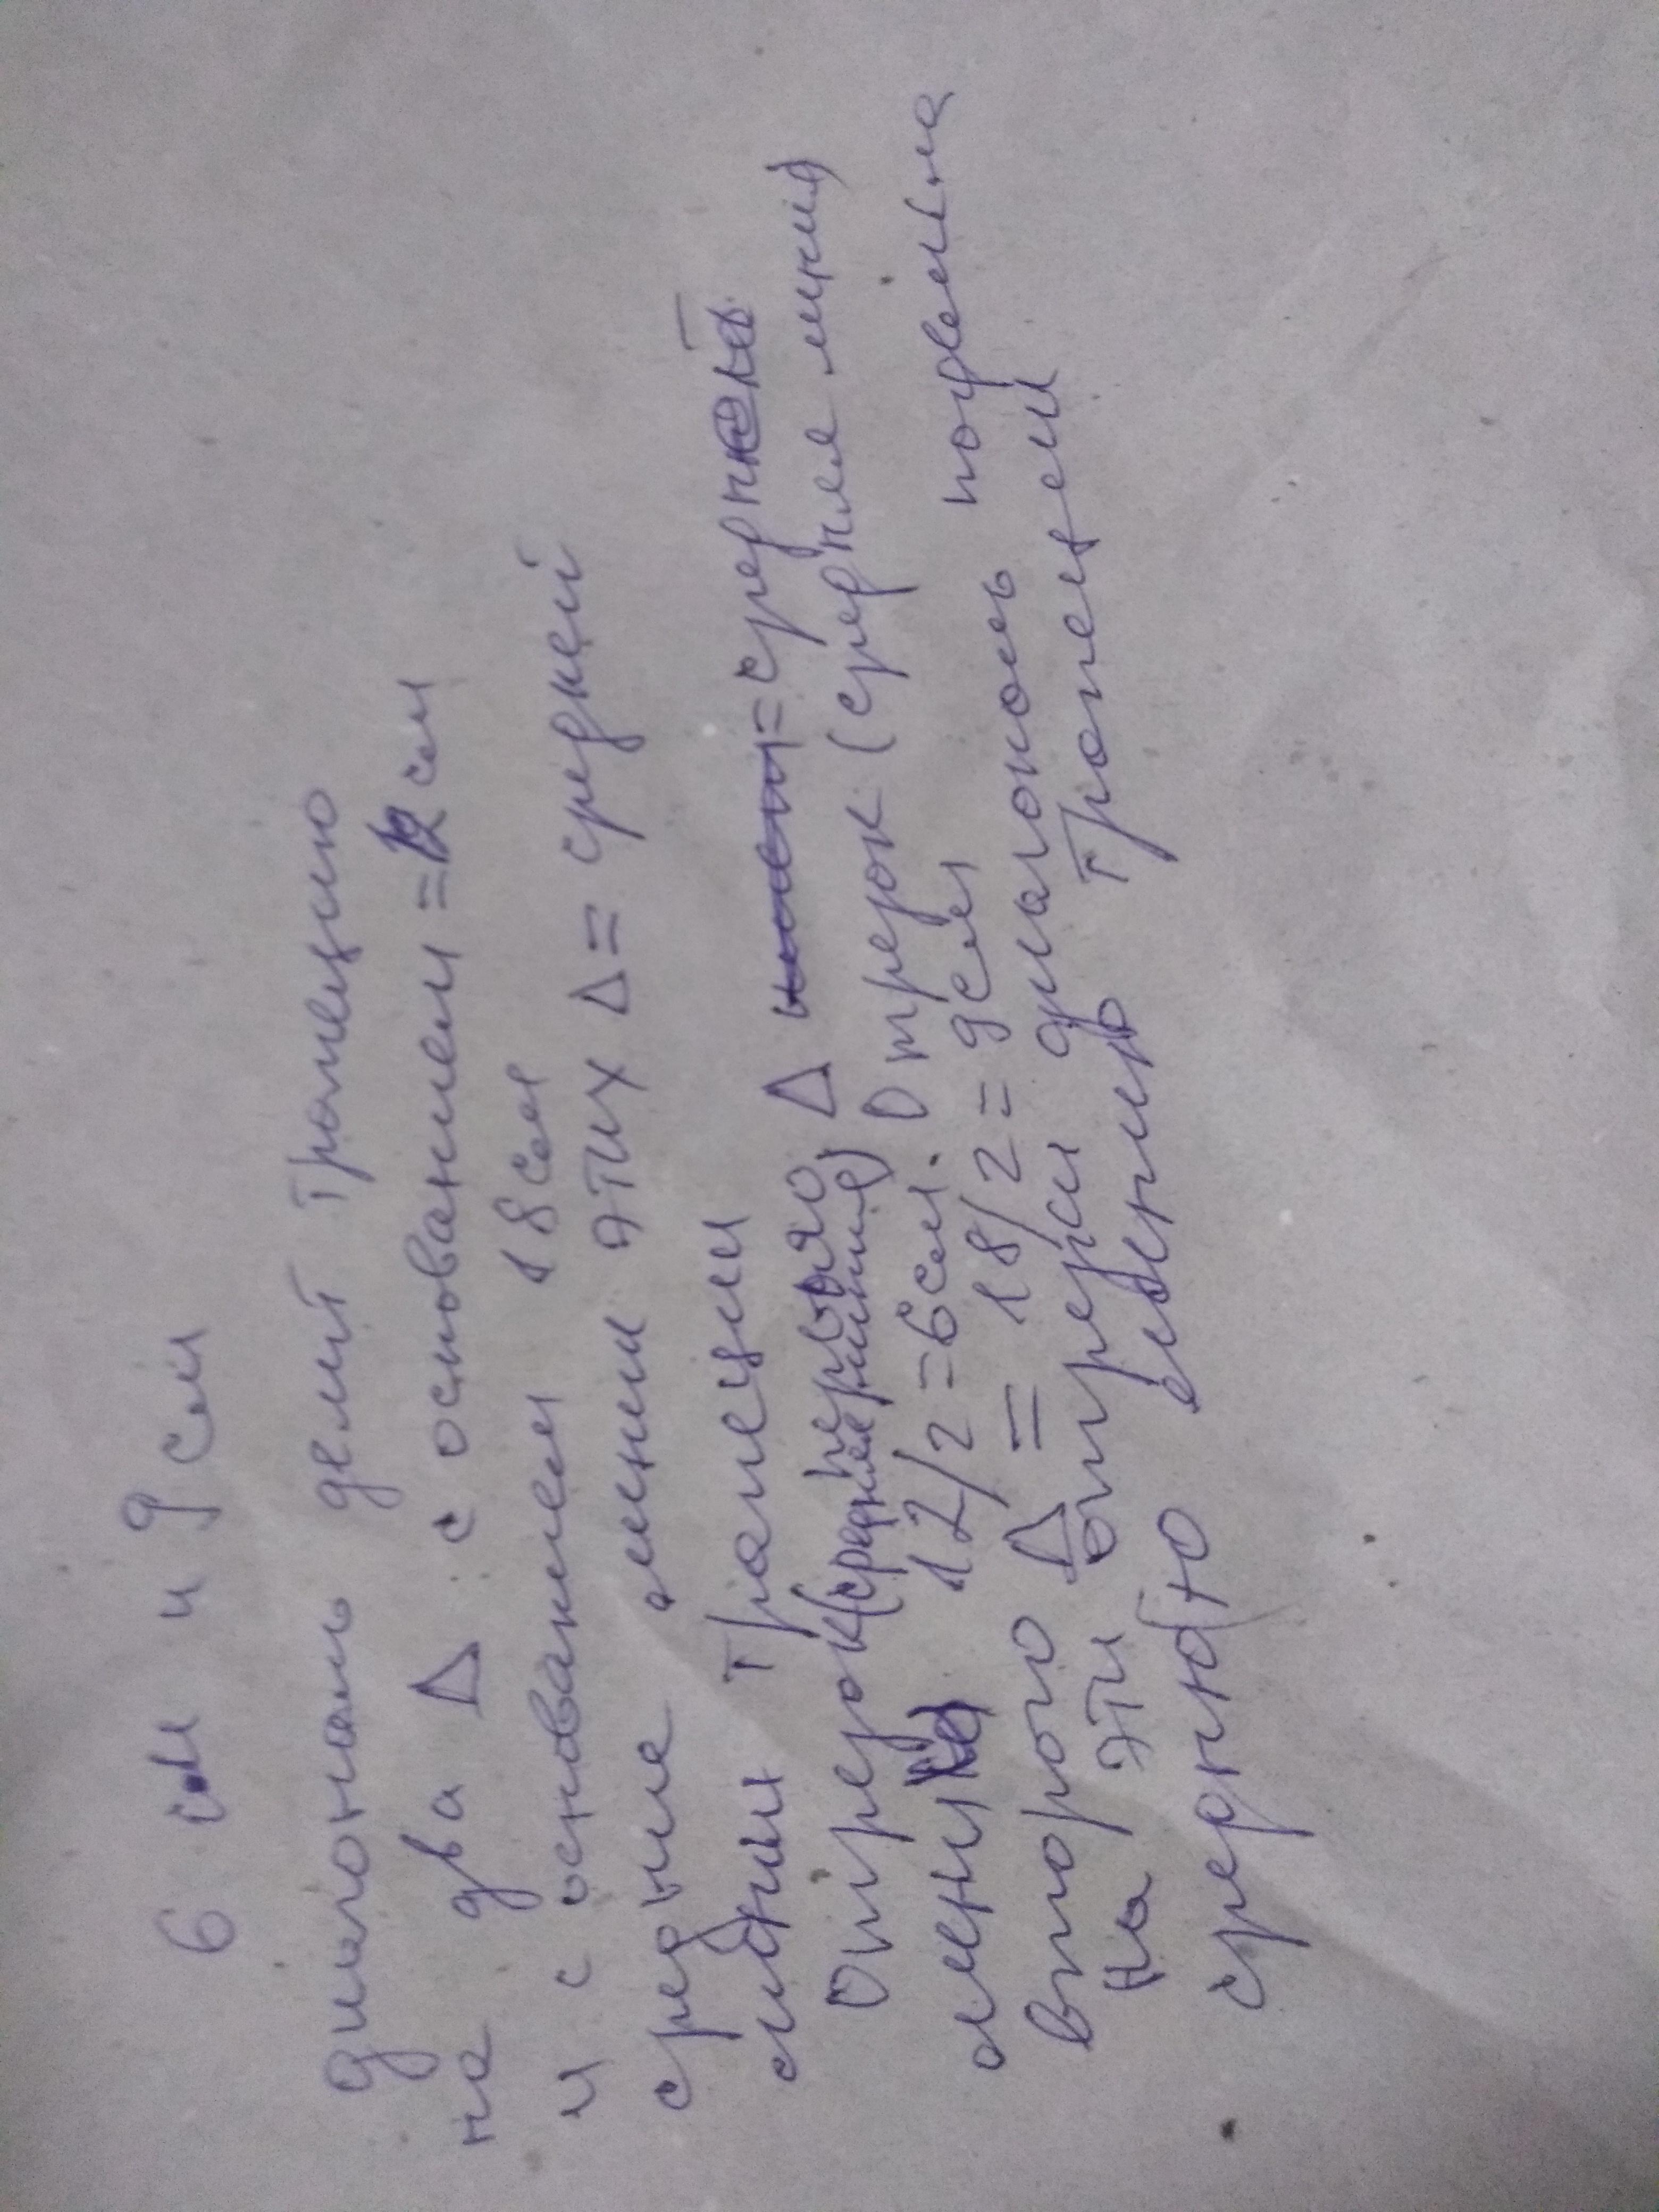 6 см и 9 см
диагональ делит трапецию
на два Δ с основанием = 12 см
и с основанием 18 см
средние линии этих Δ = средней
линии трапеции
Отрезок (средняя линия) первого Δ = средн
линия 12/2 = 6 см. Отрезок (средняя линия)
второго Δ = 18/2 = 9 см
На эти отрезки диагональ поделила
среднюю линию трапеции